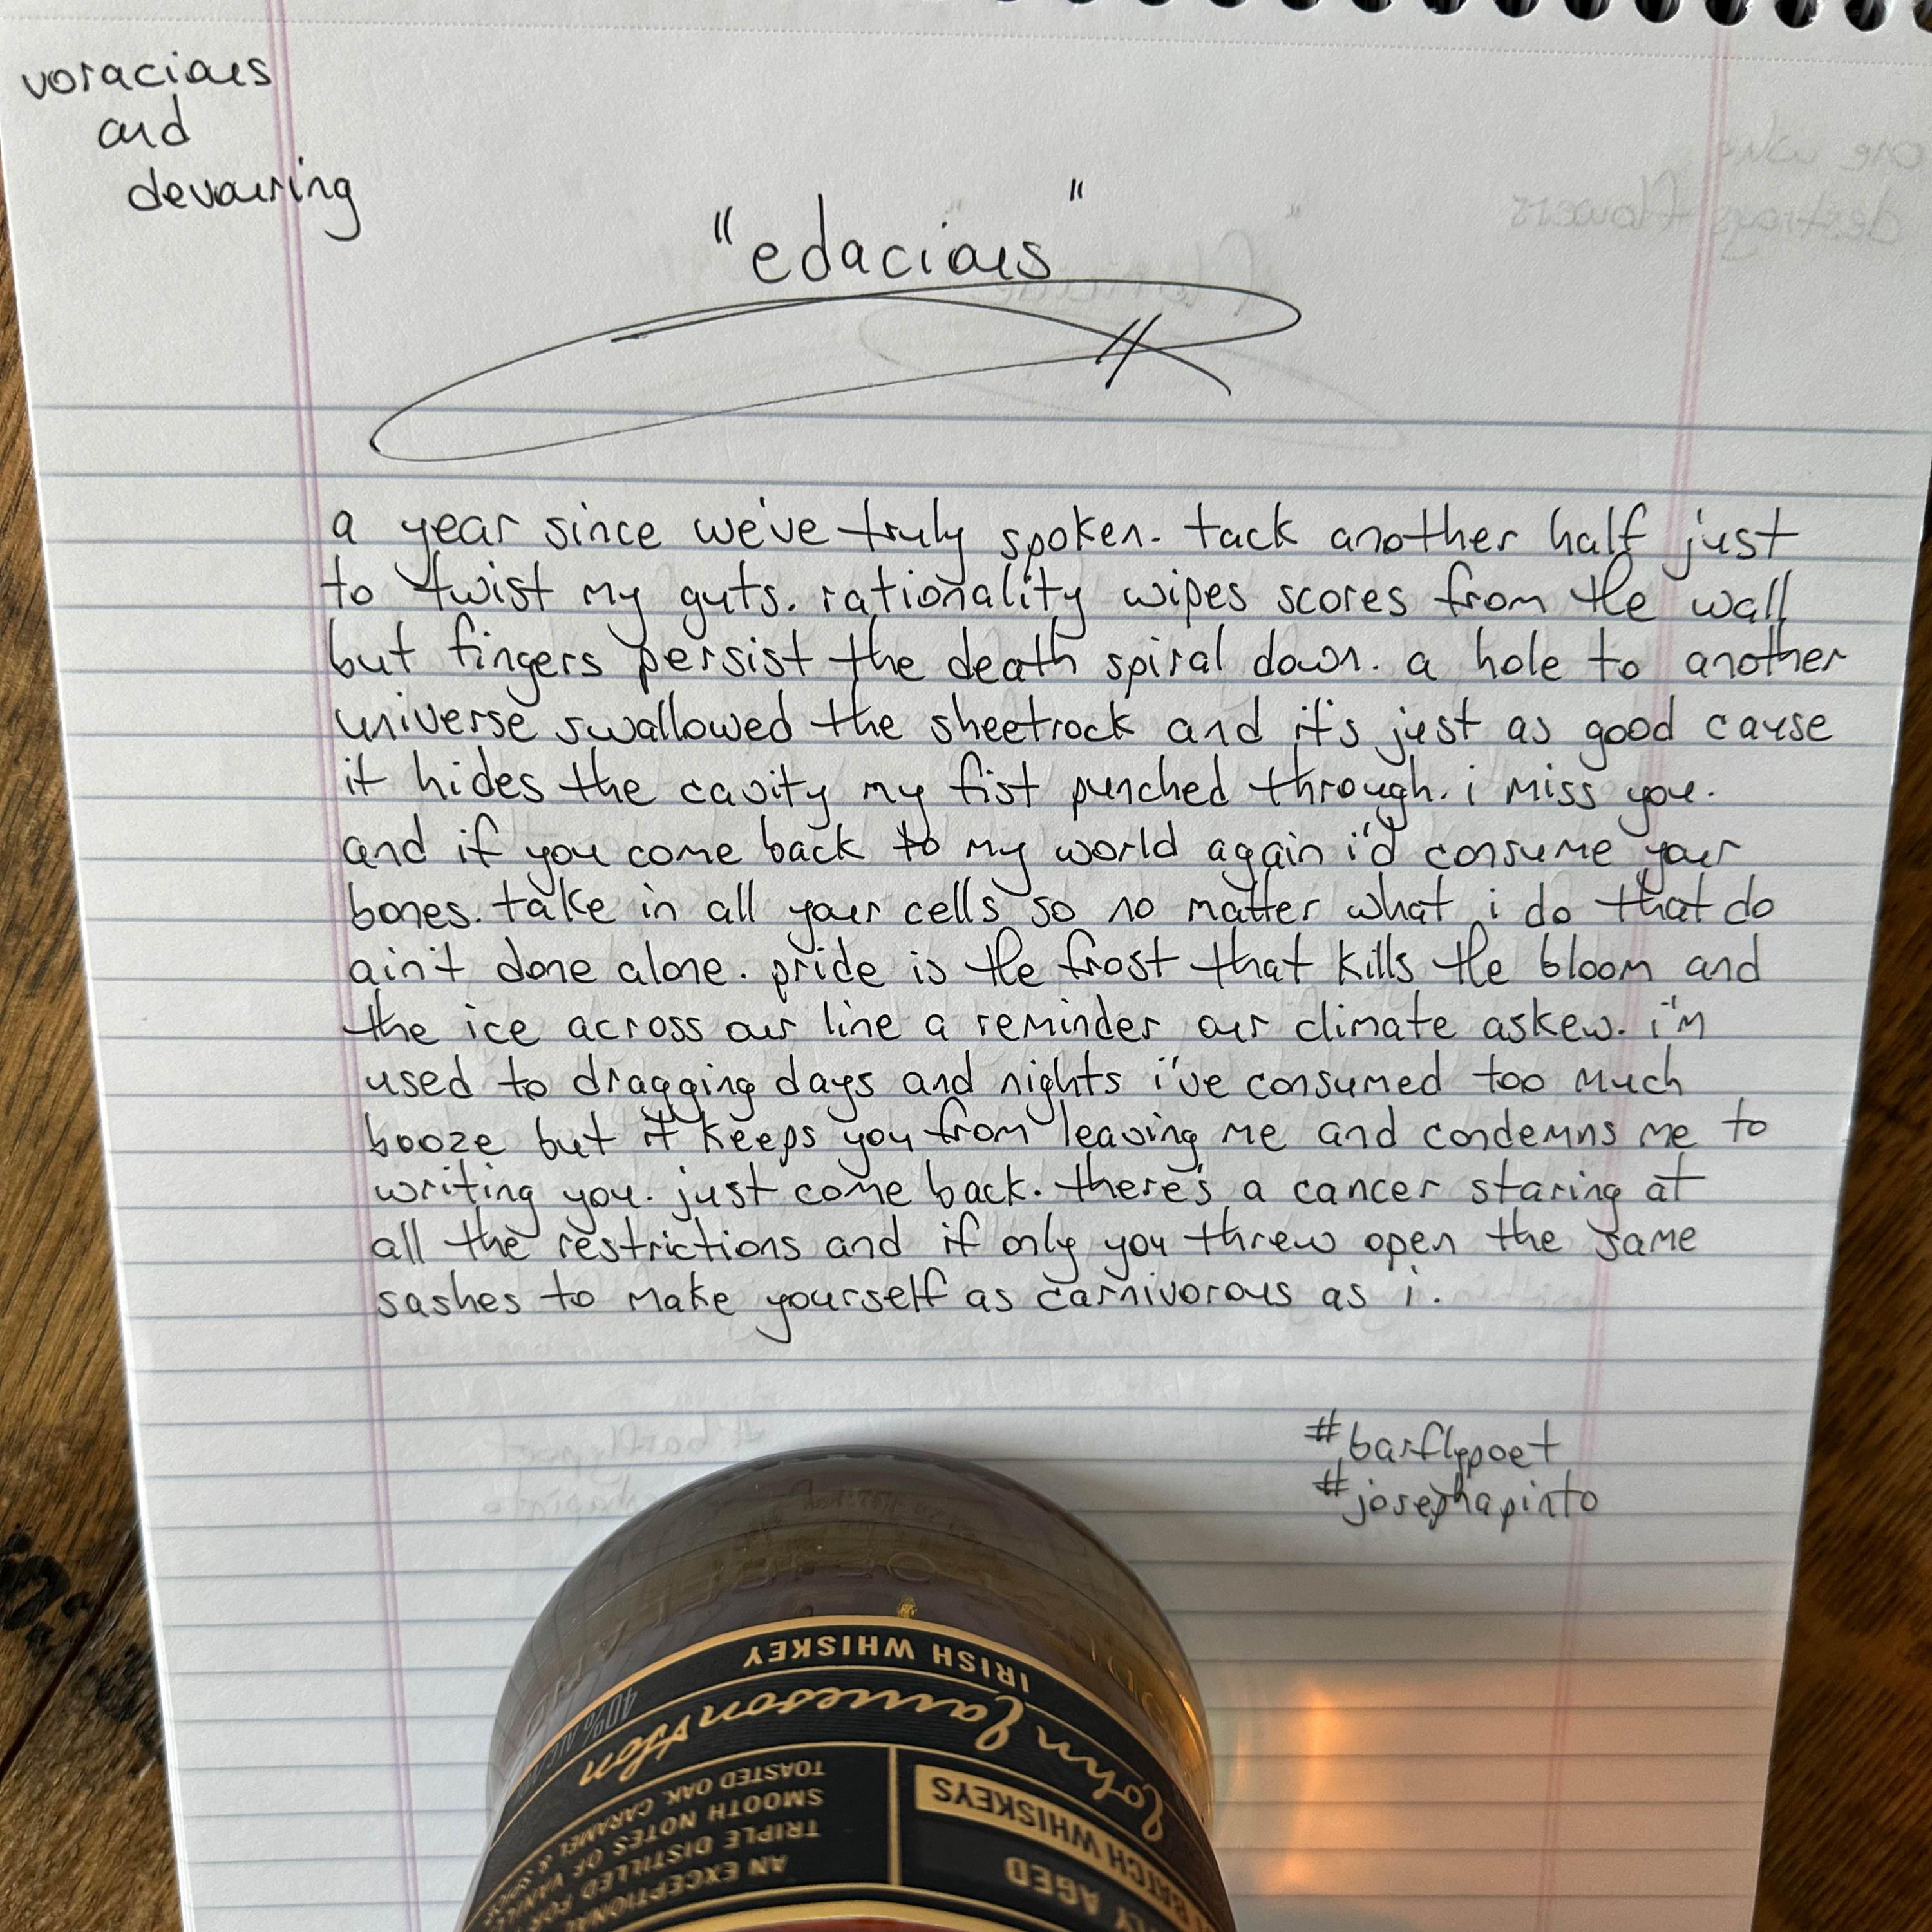 voracious
and
devouring
"edacious"
a year since we've truly spoken. tack another half just
to twist my guts. rationality wipes scores from the wall
but fingers persist the death spiral down. a hole to another
universe swallowed the sheetrock and it's just as good cause
it hides the cavity my fist punched through. i miss you.
and if you come back to my world again i'd consume your
bones. take in all your cells so no matter what i do that do
ain't done alone. pride is the frost that kills the bloom and
the ice across our line a reminder our climate askew. i'm
used to dragging days and nights i've consumed too much
booze but it keeps you from leaving me and condemns me to
writing you. just come back. there's a cancer staring at
all the restrictions and if only you threw open the same
sashes to make yourself as carnivorous as i.
#barflypoet
#josephapinto
one who
destroys flowers
IRISH WHISKEY
John Jameson & Son
40%
WHISKEYS
AGED
AN EXCEPTIONAL
TRIPLE DISTILLED
SMOOTH NOTES OF
TOASTED OAK, CARAMEL &